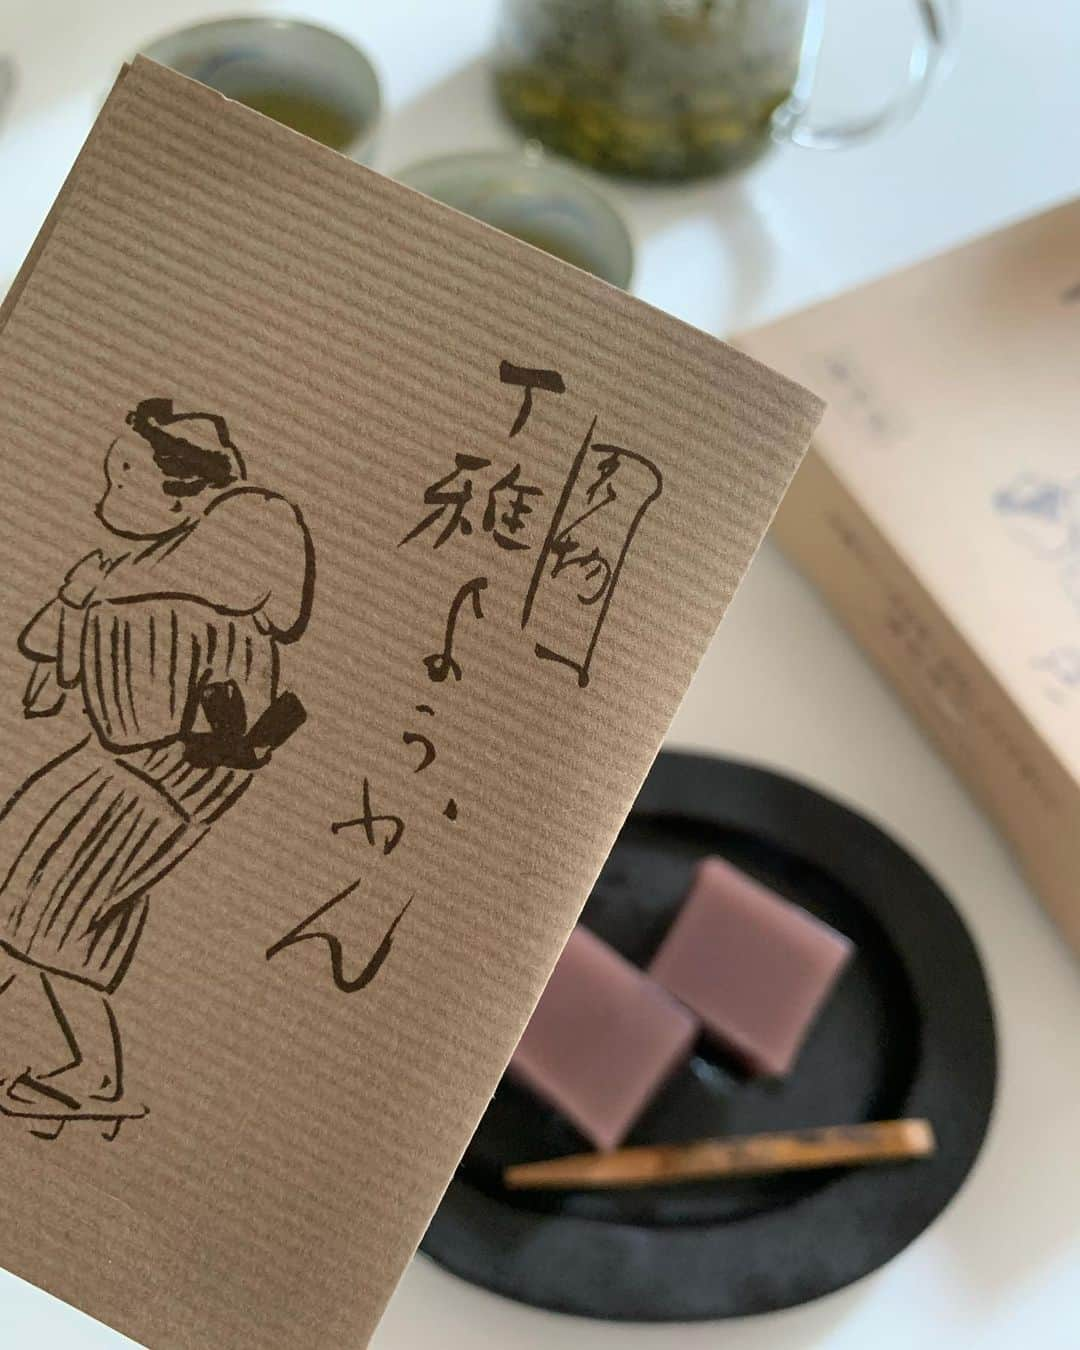 名物
丁稚ようかん